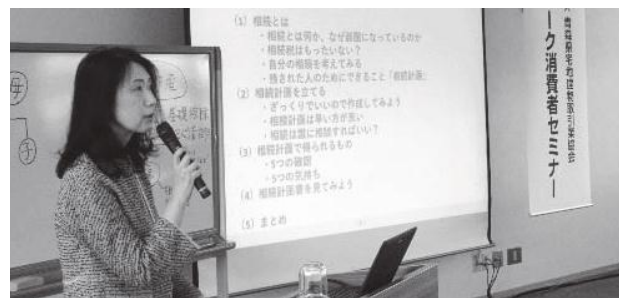 (1) 相続とは
・相続とは何か、なぜ話題になっているのか
・相続税はもったいない？
・自分の相続を考えてみる
・残された人のためにできること「相続計画」
(2) 相続計画を立てる
・ざっくりでいいので作成してみよう
・相続計画は早い方が良い
・相続は誰に相談すればいい？
(3) 相続計画で得られるもの
・5つの確認
・5つの気持ち
(4) 相続計画書を見てみよう
(5) まとめ
母
子
基礎控除
青森県宅地建物取引業協会
ーク消費者セミナー